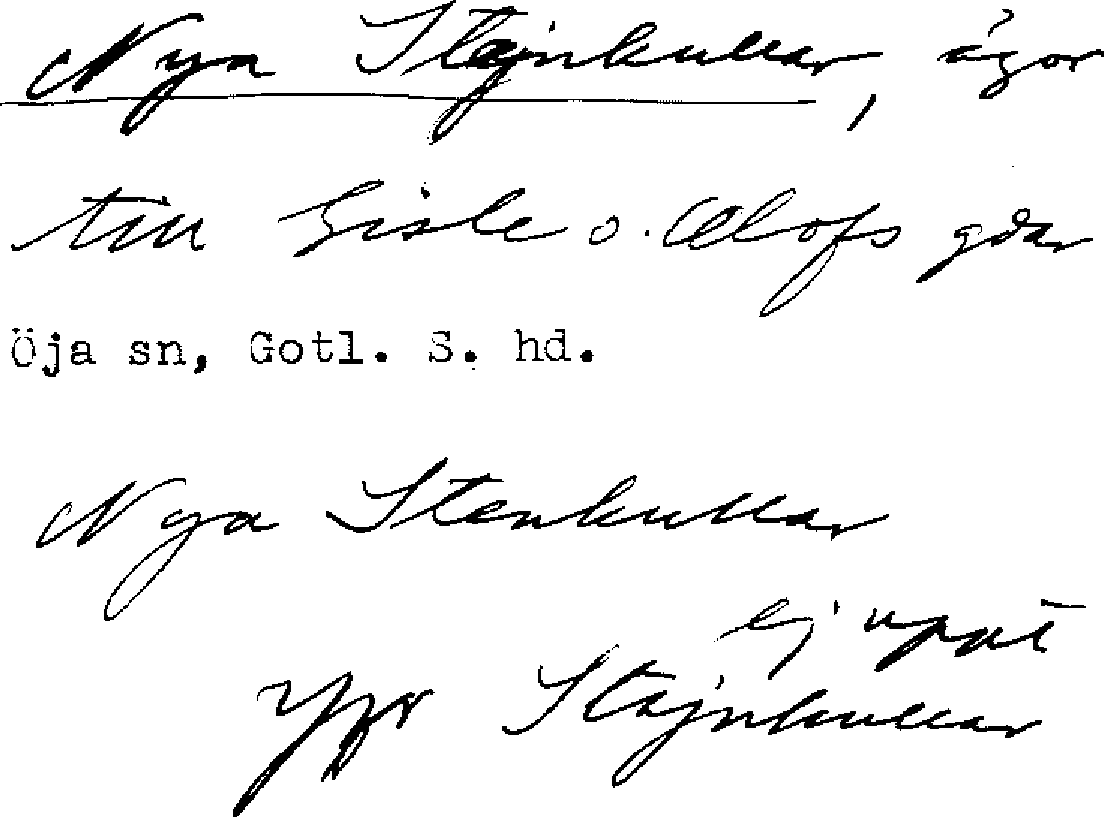 Nya Stajnkullar, ägor
till Gisle o. Olofs gdar
Öja sn, Gotl. S. hd.
Nya Stenkullar
ej uppt
Jfr Stajnkullar